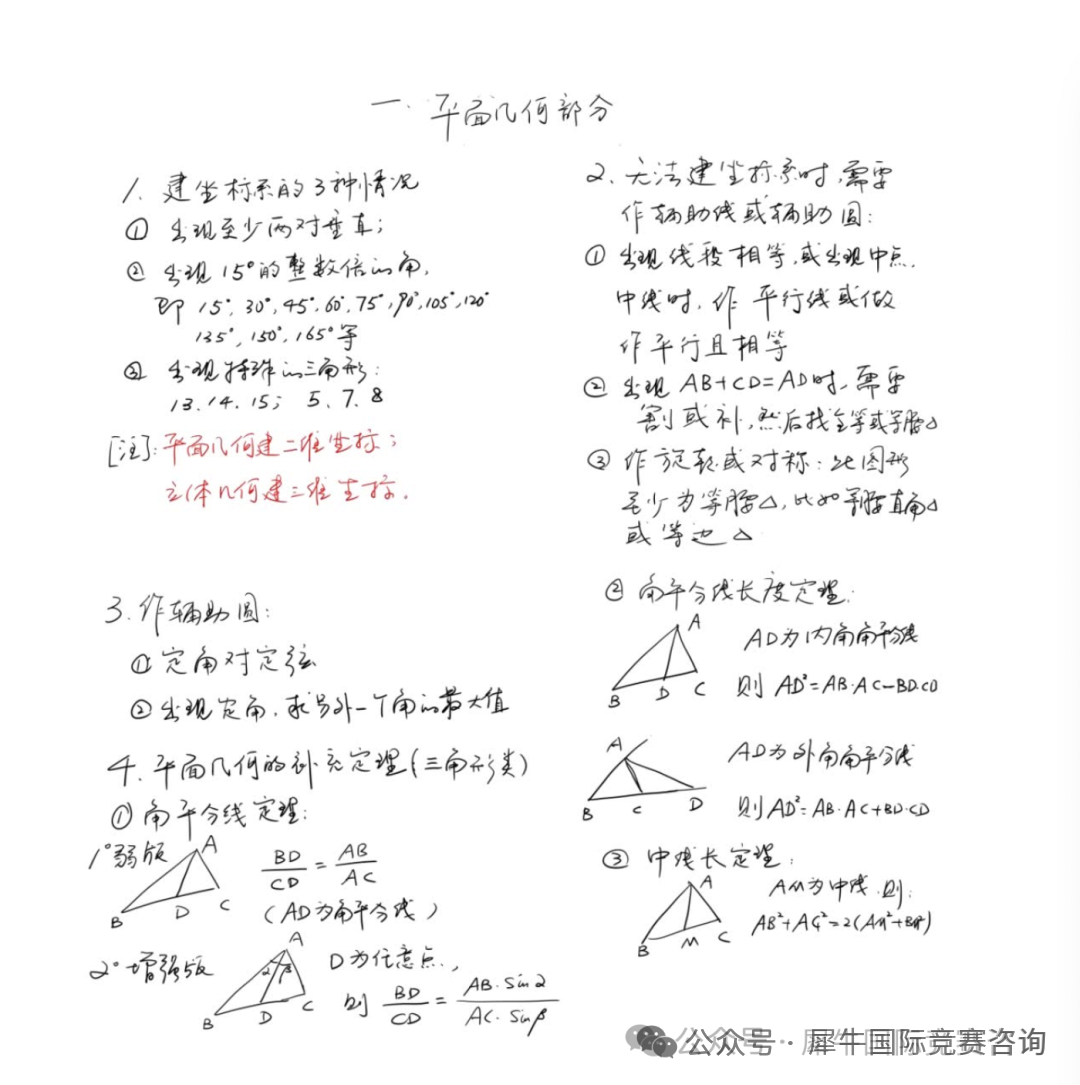 一. 平面几何部分
1. 建坐标系的3种情况
① 出现至少两对垂直;
② 出现15°的整数倍的角,
即 15°, 30°, 45°, 60°, 75°, 90°, 105°, 120°
135°, 150°, 165°等
③ 出现特殊的三角形:
13. 14. 15; 5. 7. 8
[注]: 平面几何建二维坐标;
立体几何建三维坐标.
2. 无法建坐标系时, 需要
作辅助线或辅助圆:
① 出现线段相等, 或出现中点,
中线时, 作 平行线或做
作平行且相等
② 出现 AB+CD=AD时, 需要
割或补, 然后找全等或等腰△
③ 作旋转或对称: 此图形
至少为等腰△, 比如等腰直角△
或等边△
3. 作辅助圆:
① 定角对定弦
② 出现定角, 求另外一个角的最大值
4. 平面几何的补充定理(三角形类)
① 角平分线定理:
1°弱版
A
B
D
C
BD/CD = AB/AC
(AD为角平分线)
2°增强版
A
α
β
B
D
C
D为任意点,
则 BD/CD = AB·Sinα/AC·Sinβ
② 角平分线长度定理:
A
B
D
C
AD为内角角平分线
则 AD²=AB·AC-BD·CD
A
B
C
D
AD为外角角平分线
则AD²=AB·AC+BD·CD
③ 中线长定理:
A
B
M
C
AM为中线, 则:
AB²+AC²=2(AM²+BM²)
公众号·犀牛国际竞赛咨询